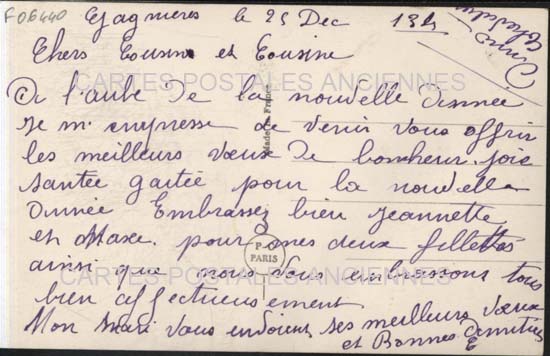 F06440
Gagnieres le 25 Dec 134
Chers Cousins et Cousine
A l'aube de la nouvelle Année
Je m'empresse de venir vous offrir
les meilleurs vœux de bonheur joie
santee gaitée pour la nouvelle
Année Embrassez bien Jeannette
et Maxe. pour mes deux fillettes
ainsi que nous vous embrassons tous
bien affectueusement
Mon Mari vous envoient ses meilleurs vœux
et Bonnes Amities
Made in France
P-C
PARIS
CARTES POSTALES ANCIENNES
CARTES POSTALES ANCIENNES